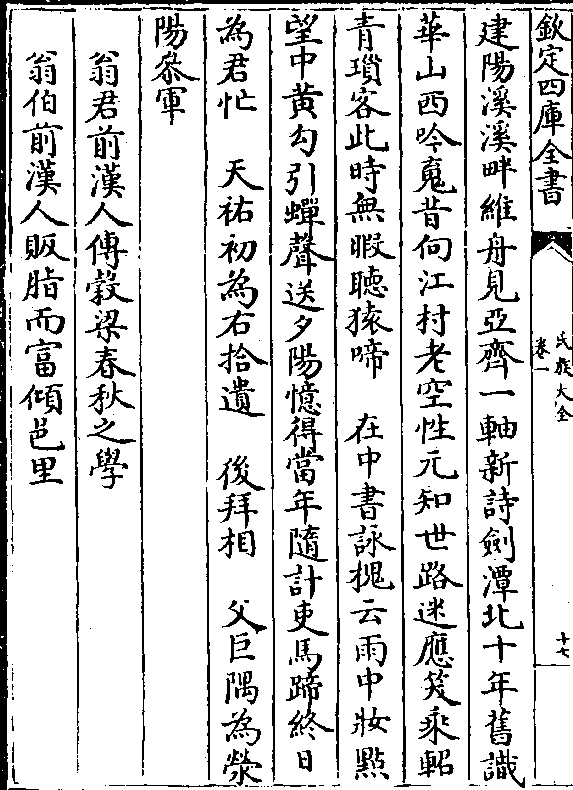 欽定四庫全書
氏族大全
卷一
十七
建陽溪溪畔維舟見亞齊一軸新詩劍潭北十年舊識
華山西吟䰟昔向江村老空性元知世路迷應笑乘軺
青瑣客此時無暇聽猿啼　在中書詠槐云雨中妝點
望中黄勾引蟬聲送夕陽憶得當年隨計吏馬蹄終日
為君忙　天祐初為右拾遺　後拜相　父巨隅為滎
陽叅軍
翁君前漢人傳榖梁春秋之學
翁伯前漢人販脂而富傾邑里